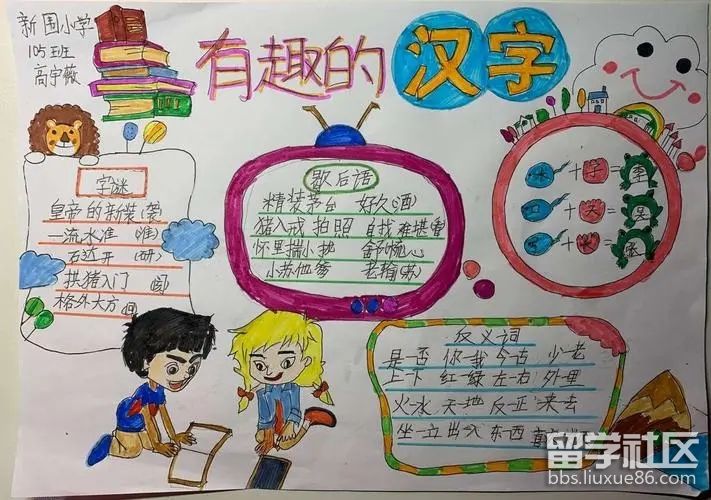 新围小学
105班
高宇薇
有趣的汉字
字谜
皇帝的新装(袭)
一流水准 (淮)
石达开 (研)
拱猪入门
格外大方 (回)
歇后语
精装茅台 好久(酒)
猪八戒拍照 自找难堪
怀里揣小 心
小 他爹 老输
+子 李
+
+
反义词
是-否 你-我 今-古 少-老
上-下 红-绿 左-右 外-里
火-水 天-地 反-正 来-去
坐-立 出-入 东-西
留学社区
bbs.liuxue86.com